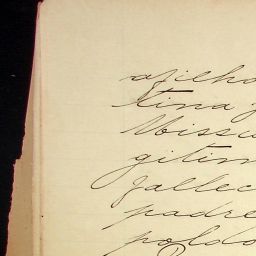 afilho
tina
Missu
gitim
fallec
padre
poldo